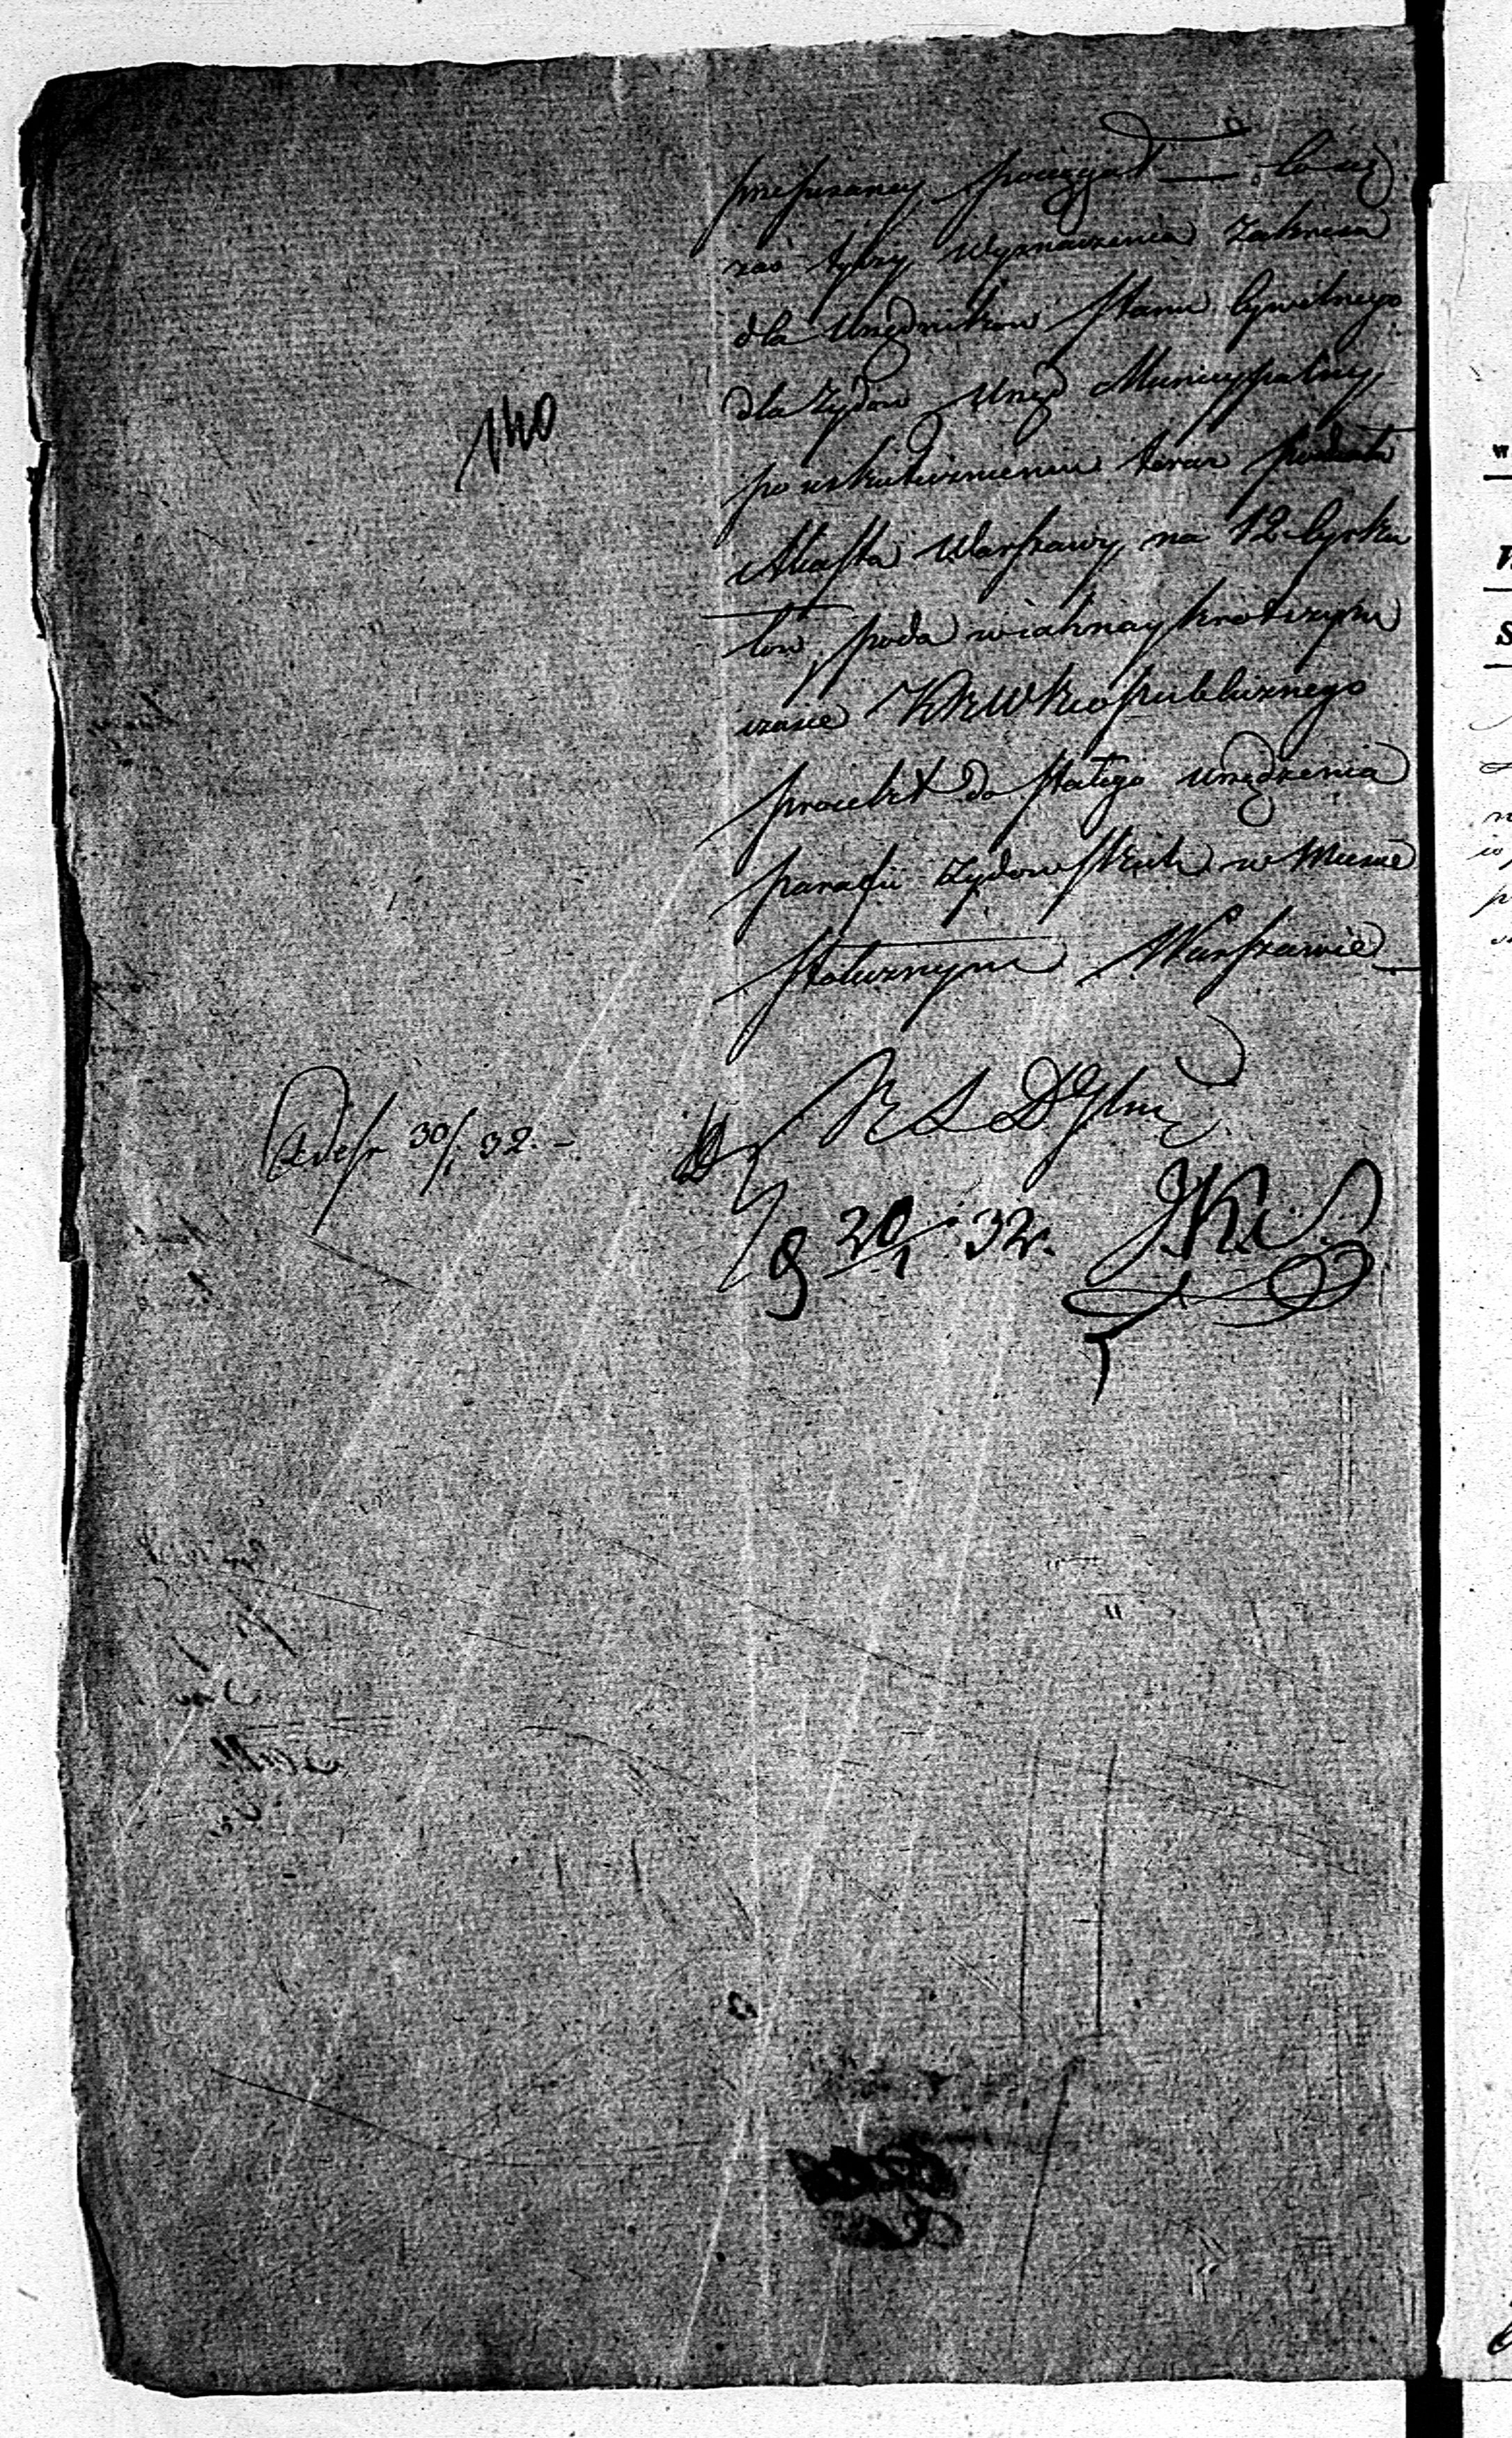 przepisaney początek — Co się
zaś tyczy wyznaczenia zakresu
dla Urzędników Stanu Cywilnego
dla Żydów Urząd Municypalny
po uskutecznieniu teraz podziału
Miasta Warszawy na 12 Cyrku
łów, poda w iak naykrótszym
czasie KRWRiOpublicznego
proiekt do stałego urządzenia
parafii żydowskich w Mieście
Stołecznym Warszawie —
140
30/1 32. —
20/1 32.